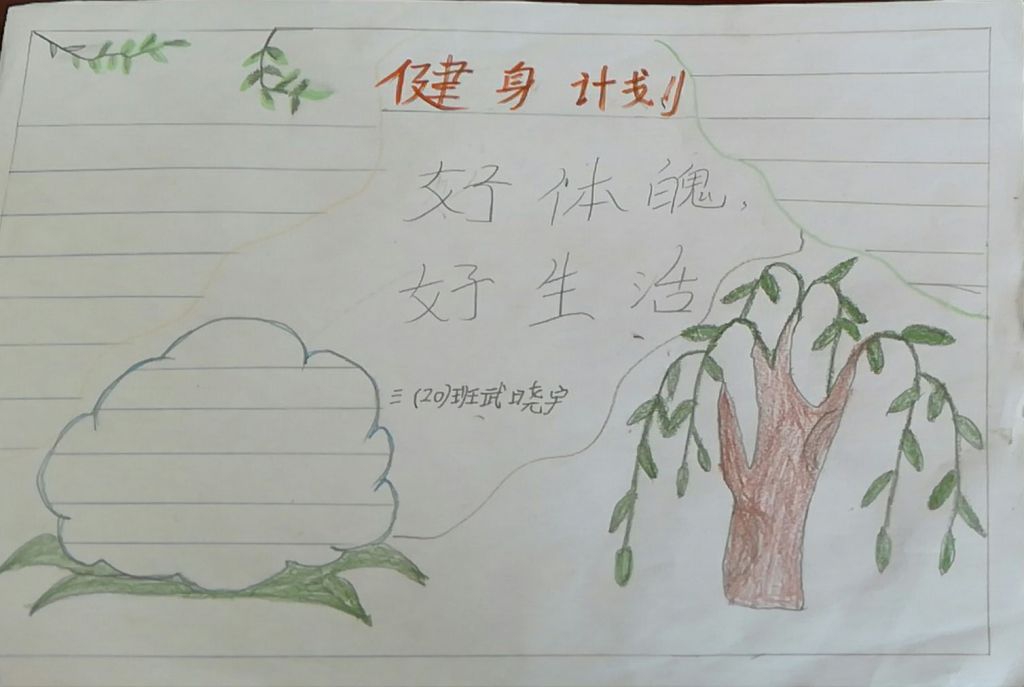 健身计划
好体魄,
好生活
三(20)班武晓宇